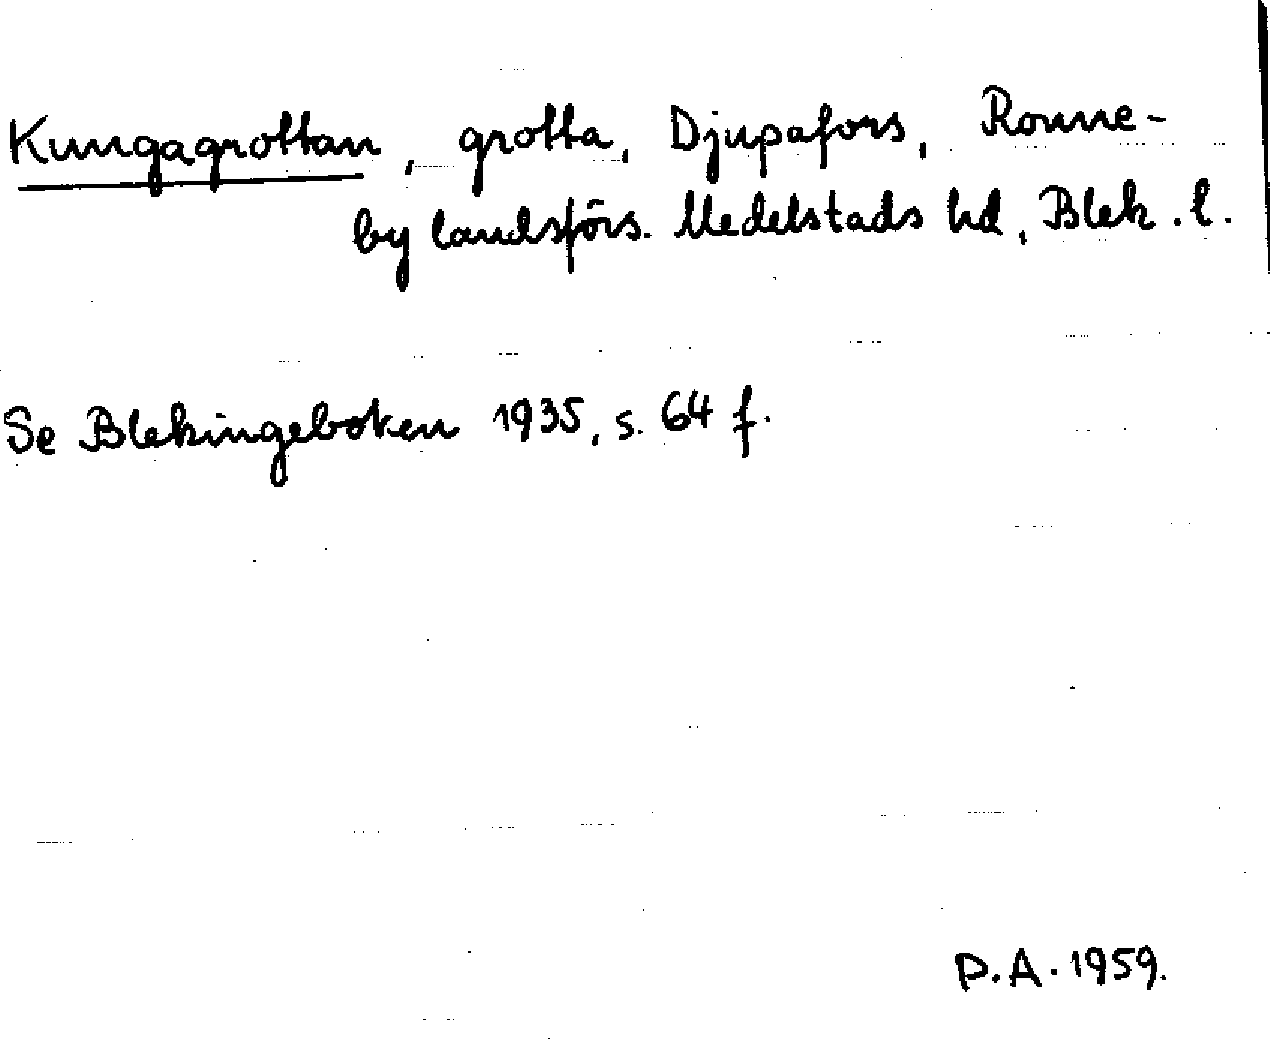 Kungagrottan, grotta, Djupafors, Ronne-
by landsförs. Medelstads hd, Blek. l.
Se Blekingeboken 1935, s. 64 f.
P.A. 1959.